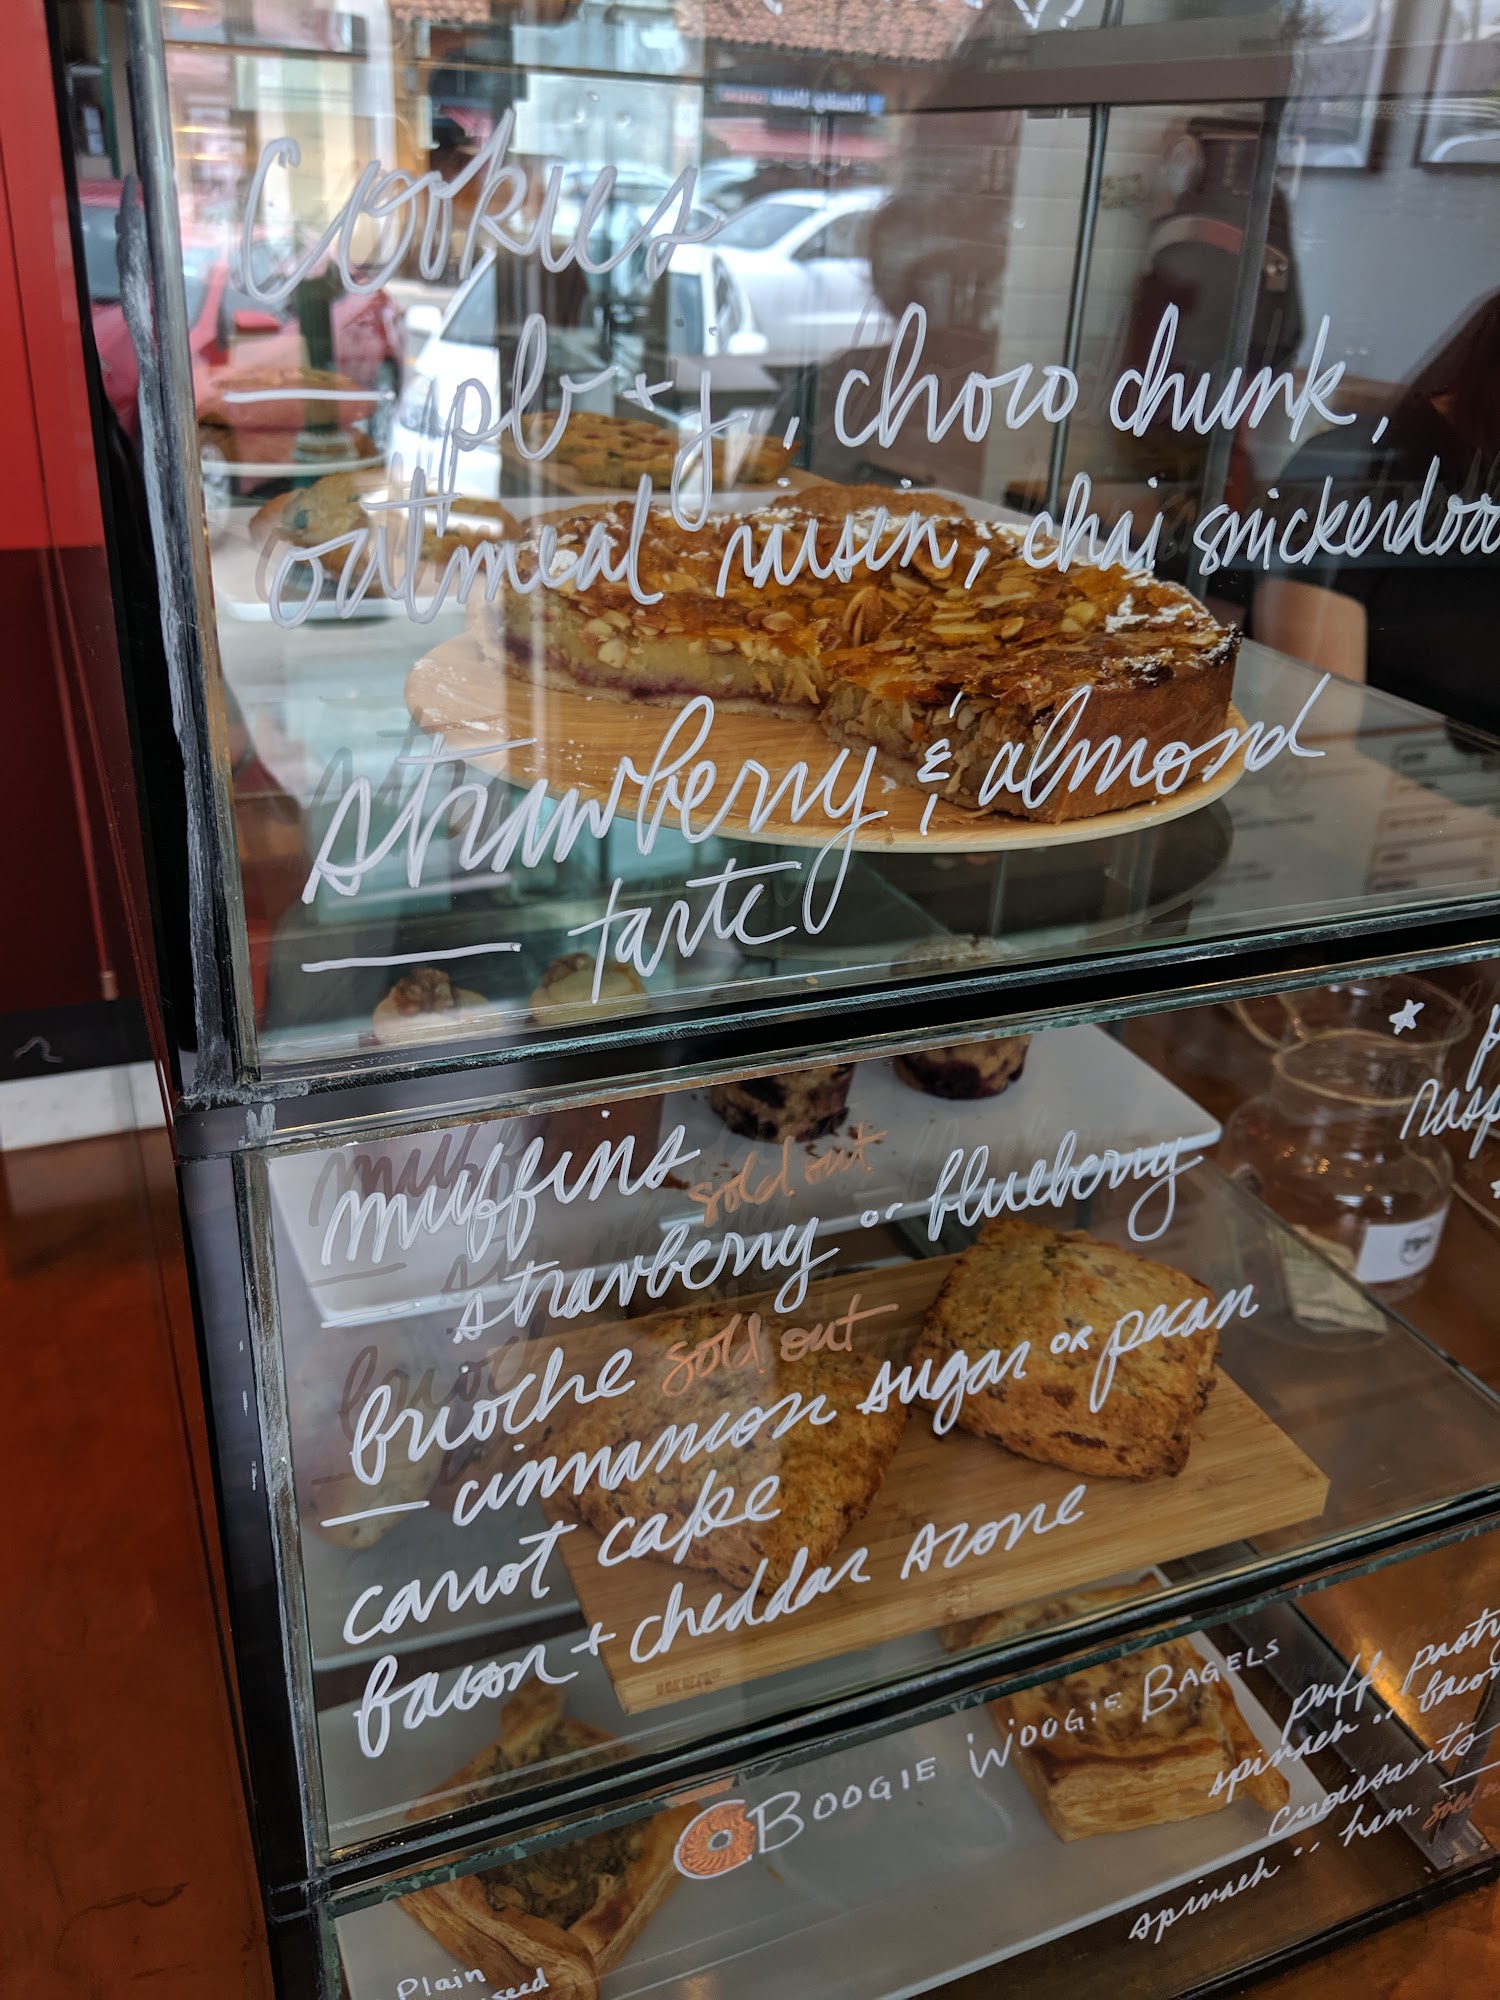 Cookies
pb + j, choco chunk,
oatmeal raisin, chai snickerdoo
strawberry & almond
tarte
muffins sold out
strawberry or blueberry
brioche sold out
cinnamon sugar or pecan
carrot cake
bacon + cheddar scone
Boogie Woogie Bagels
puff pastry
spinach or bacon
croissants
spinach or ham sold out
Plain
seed